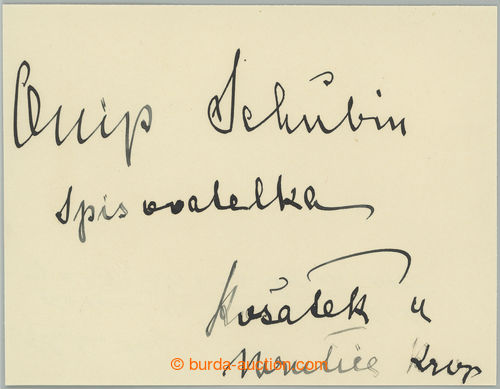 Ossip Schubin
spisovatelka
Košátek u
© burda-auction.com